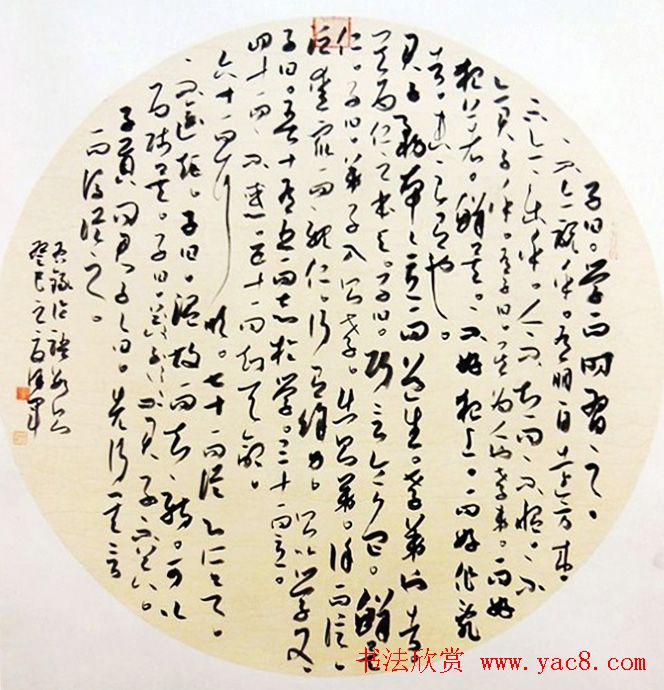 子曰。学而时习之。
不亦说乎。有朋自远方来。
不亦乐乎。人不知而不愠。不
亦君子乎。有子曰。其为人也孝弟。而好
犯上者。鲜矣。不好犯上。而好作乱
者。未之有也。
君子务本。本立而道生。孝弟也者。
其为仁之本与。子曰。巧言令色。鲜矣
仁。子曰。弟子入则孝。出则弟。谨而信。
泛爱众而亲仁。行有余力。则以学文。
子曰。吾十有五而志於学。三十而立。
四十而不惑。五十而知天命。
六十而耳顺。七十而从心所欲。
不逾矩。子曰。温故而知新。可以
为师矣。子曰。君子不
子贡问君子。子曰。先行其言
而后从之。
录论语
癸巳之夏
书法欣赏 www.yac8.com